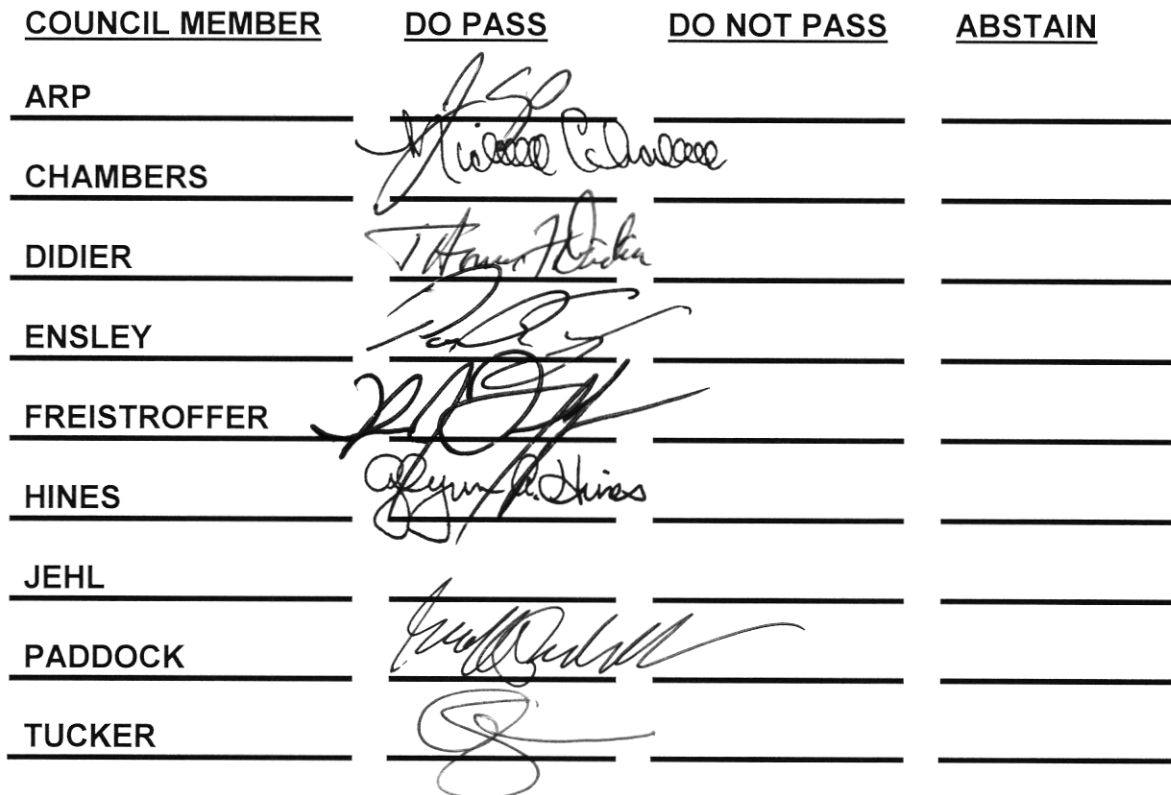 COUNCIL MEMBER DO PASS DO NOT PASS ABSTAIN
ARP
CHAMBERS Michelle Chambers
DIDIER Thomas F Didier
ENSLEY
FREISTROFFER
HINES Glynn A. Hines
JEHL
PADDOCK Geoff Paddock
TUCKER